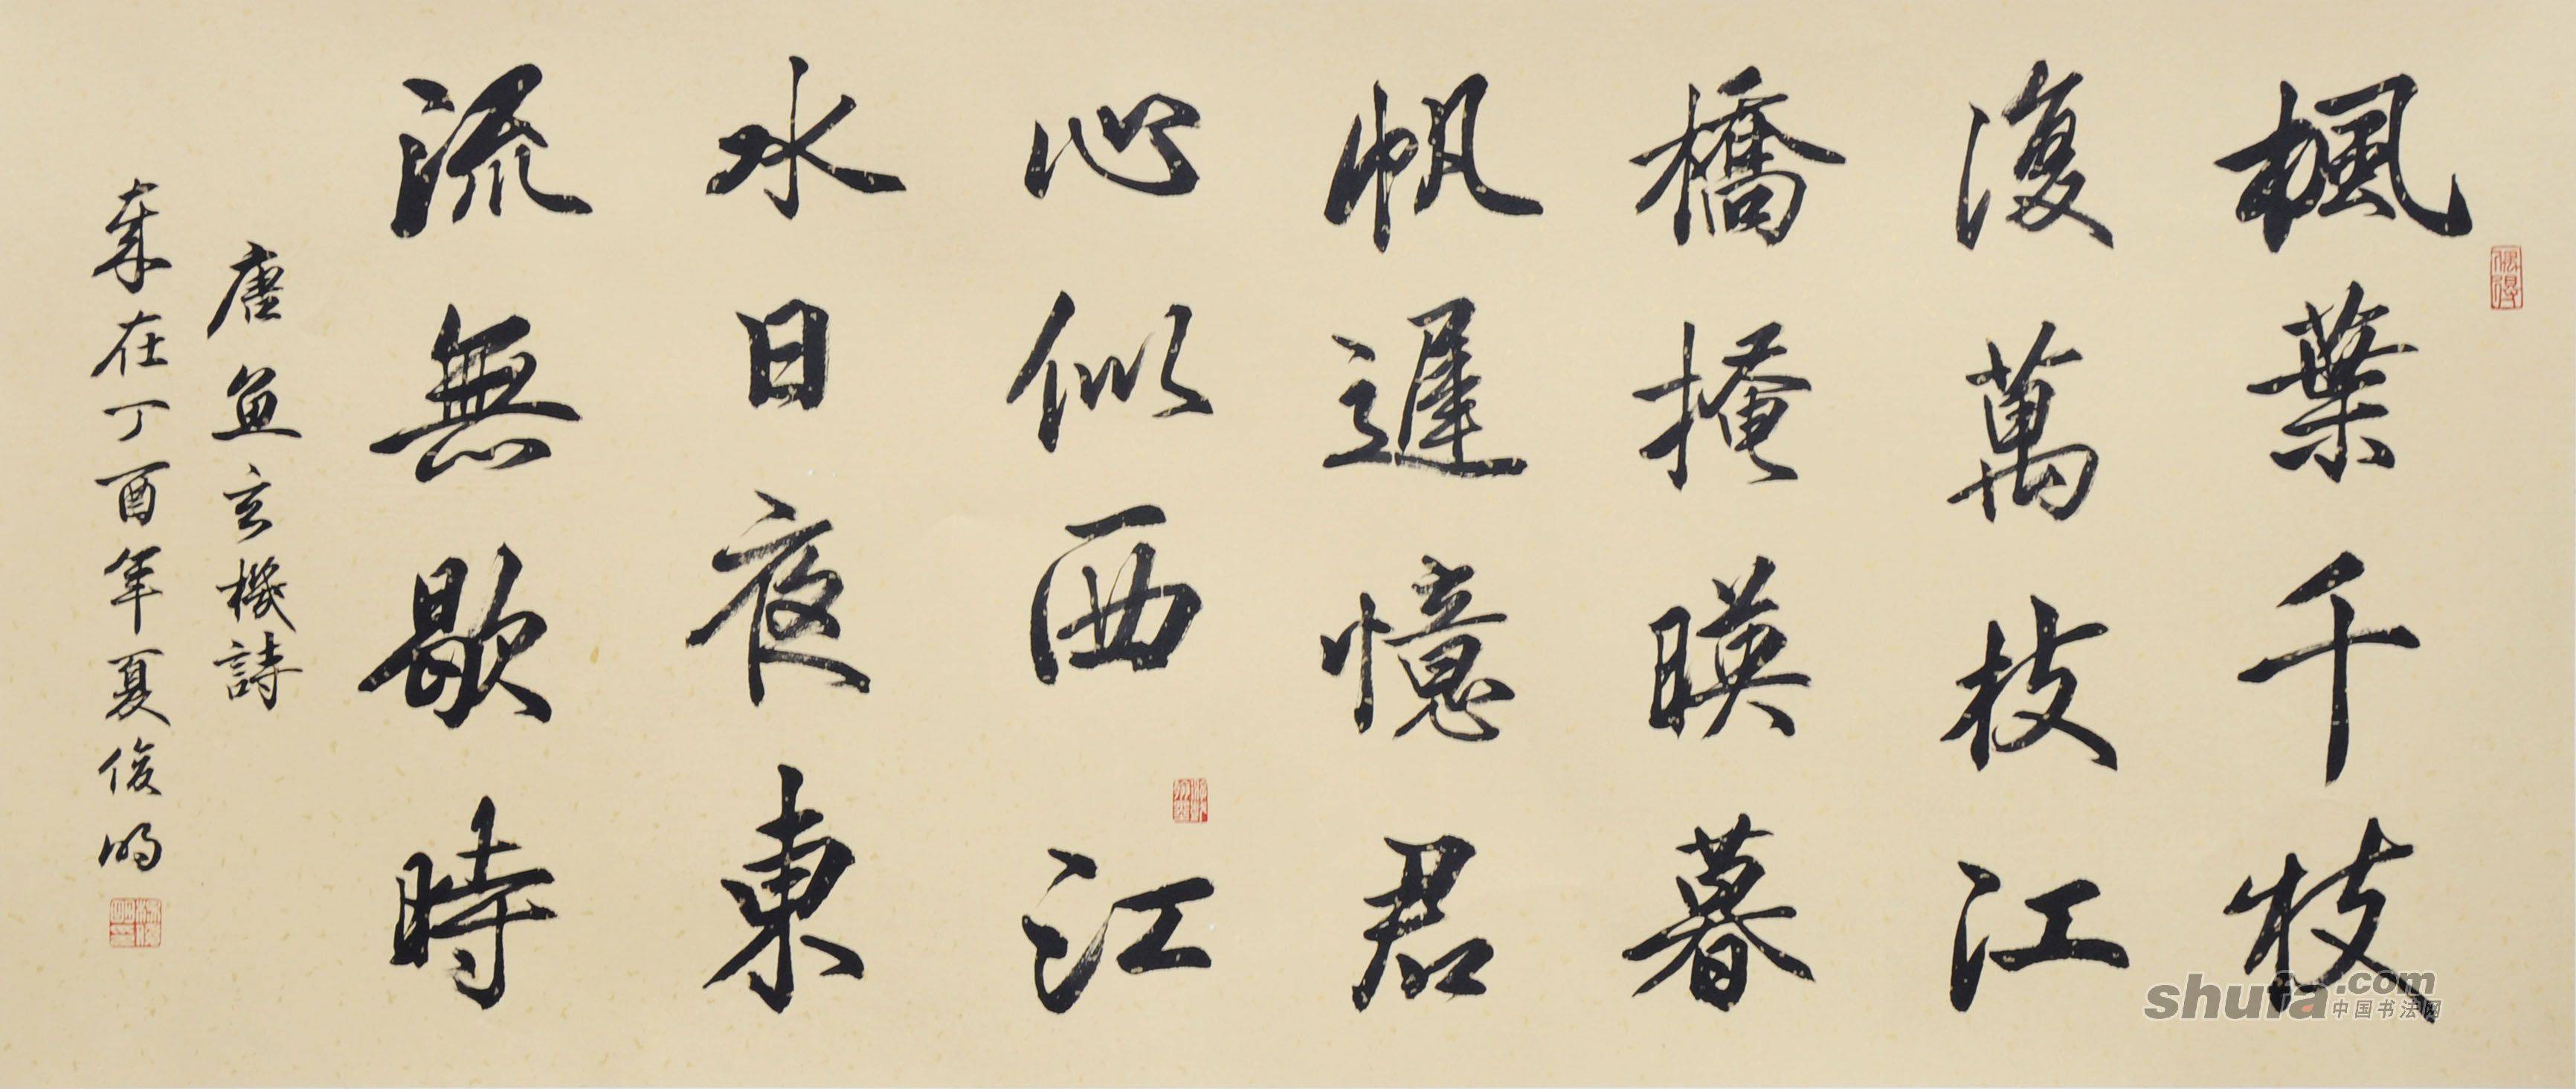 楓葉千枝
復萬枝江
橋掩暎暮
帆遲憶君
心似西江
水日夜東
流無歇時
唐魚玄機詩
歲在丁酉年夏俊明
shufa.com
中国书法网